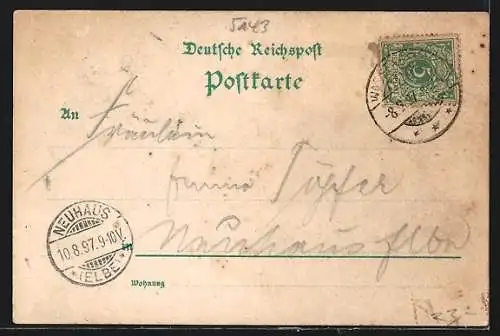 5143
Deutsche Reichspost
Postkarte
An Fräulein
Töpfer
in Neuhaus Elbe
Wohnung
NEUHAUS
10.8.97.9-10V.
* (ELBE) *
5